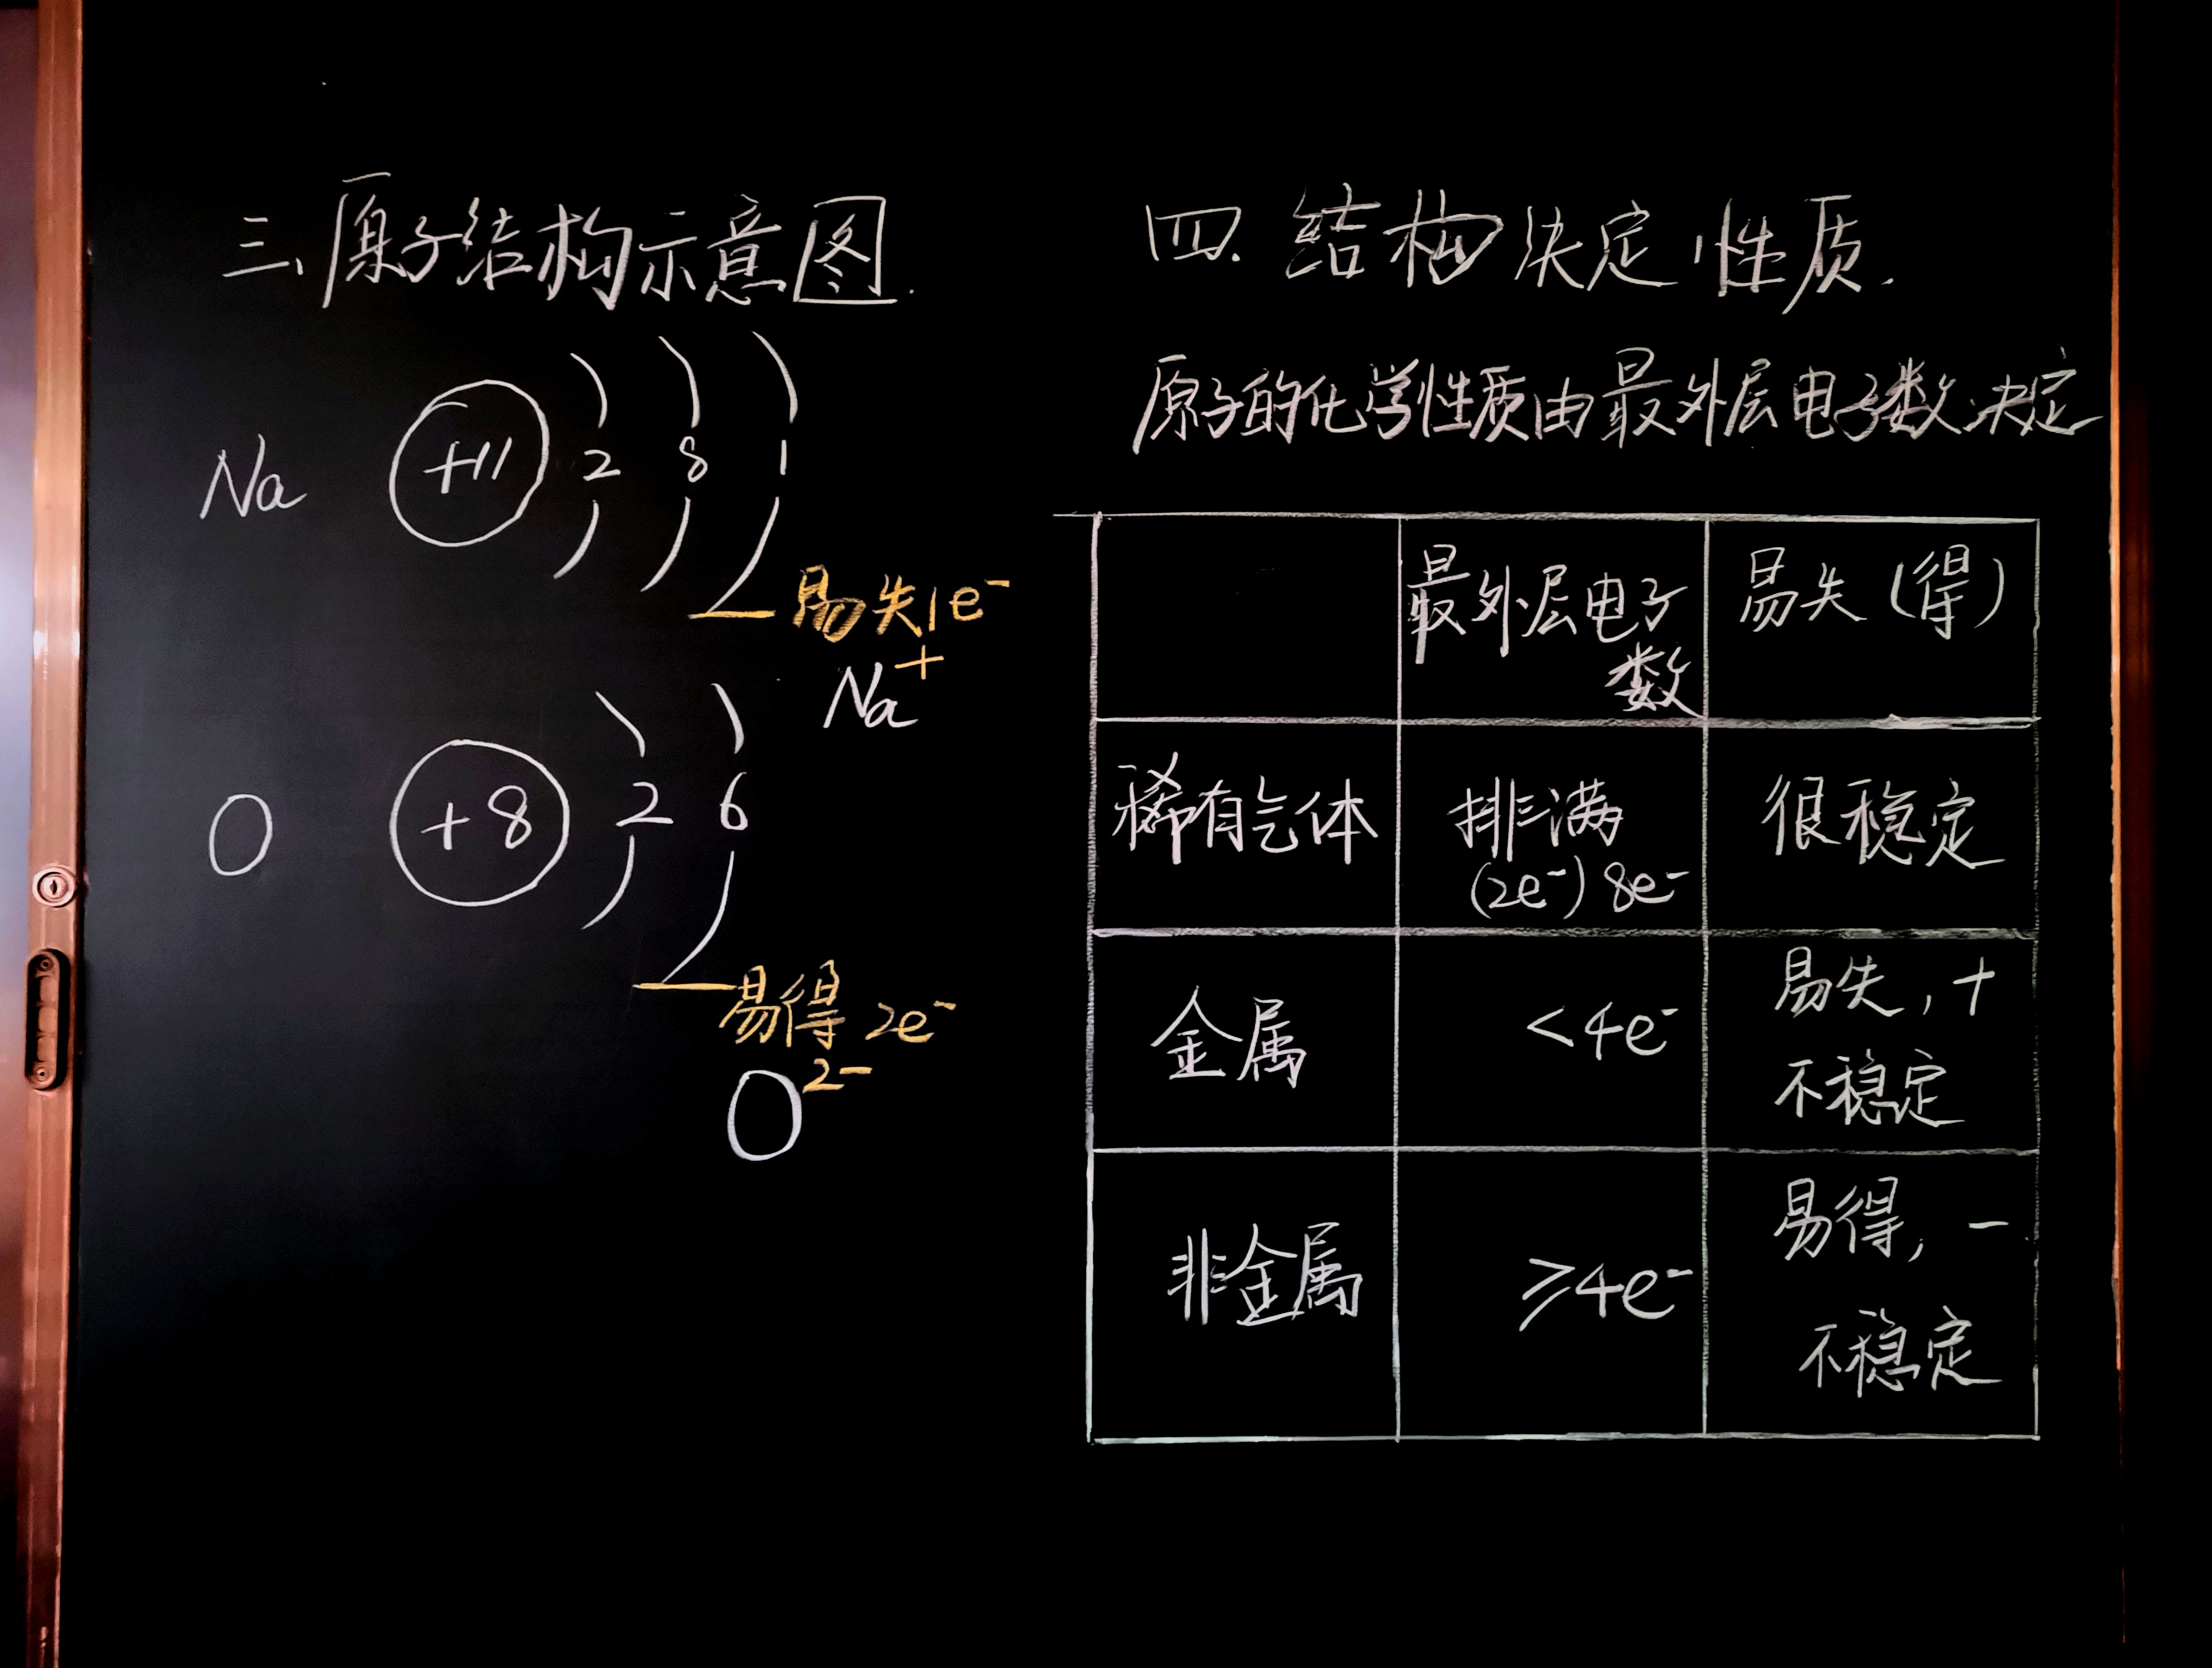 三、原子结构示意图.
Na +11 2 8 1
易失1e⁻
Na⁺
O +8 2 6
易得2e⁻
O²⁻
四.结构决定性质.
原子的化学性质由最外层电子数决定
最外层电子数 易失(得)
稀有气体 排满 (2e⁻) 8e⁻ 很稳定
金属 <4e⁻ 易失,+ 不稳定
非金属 ≥4e⁻ 易得,- 不稳定